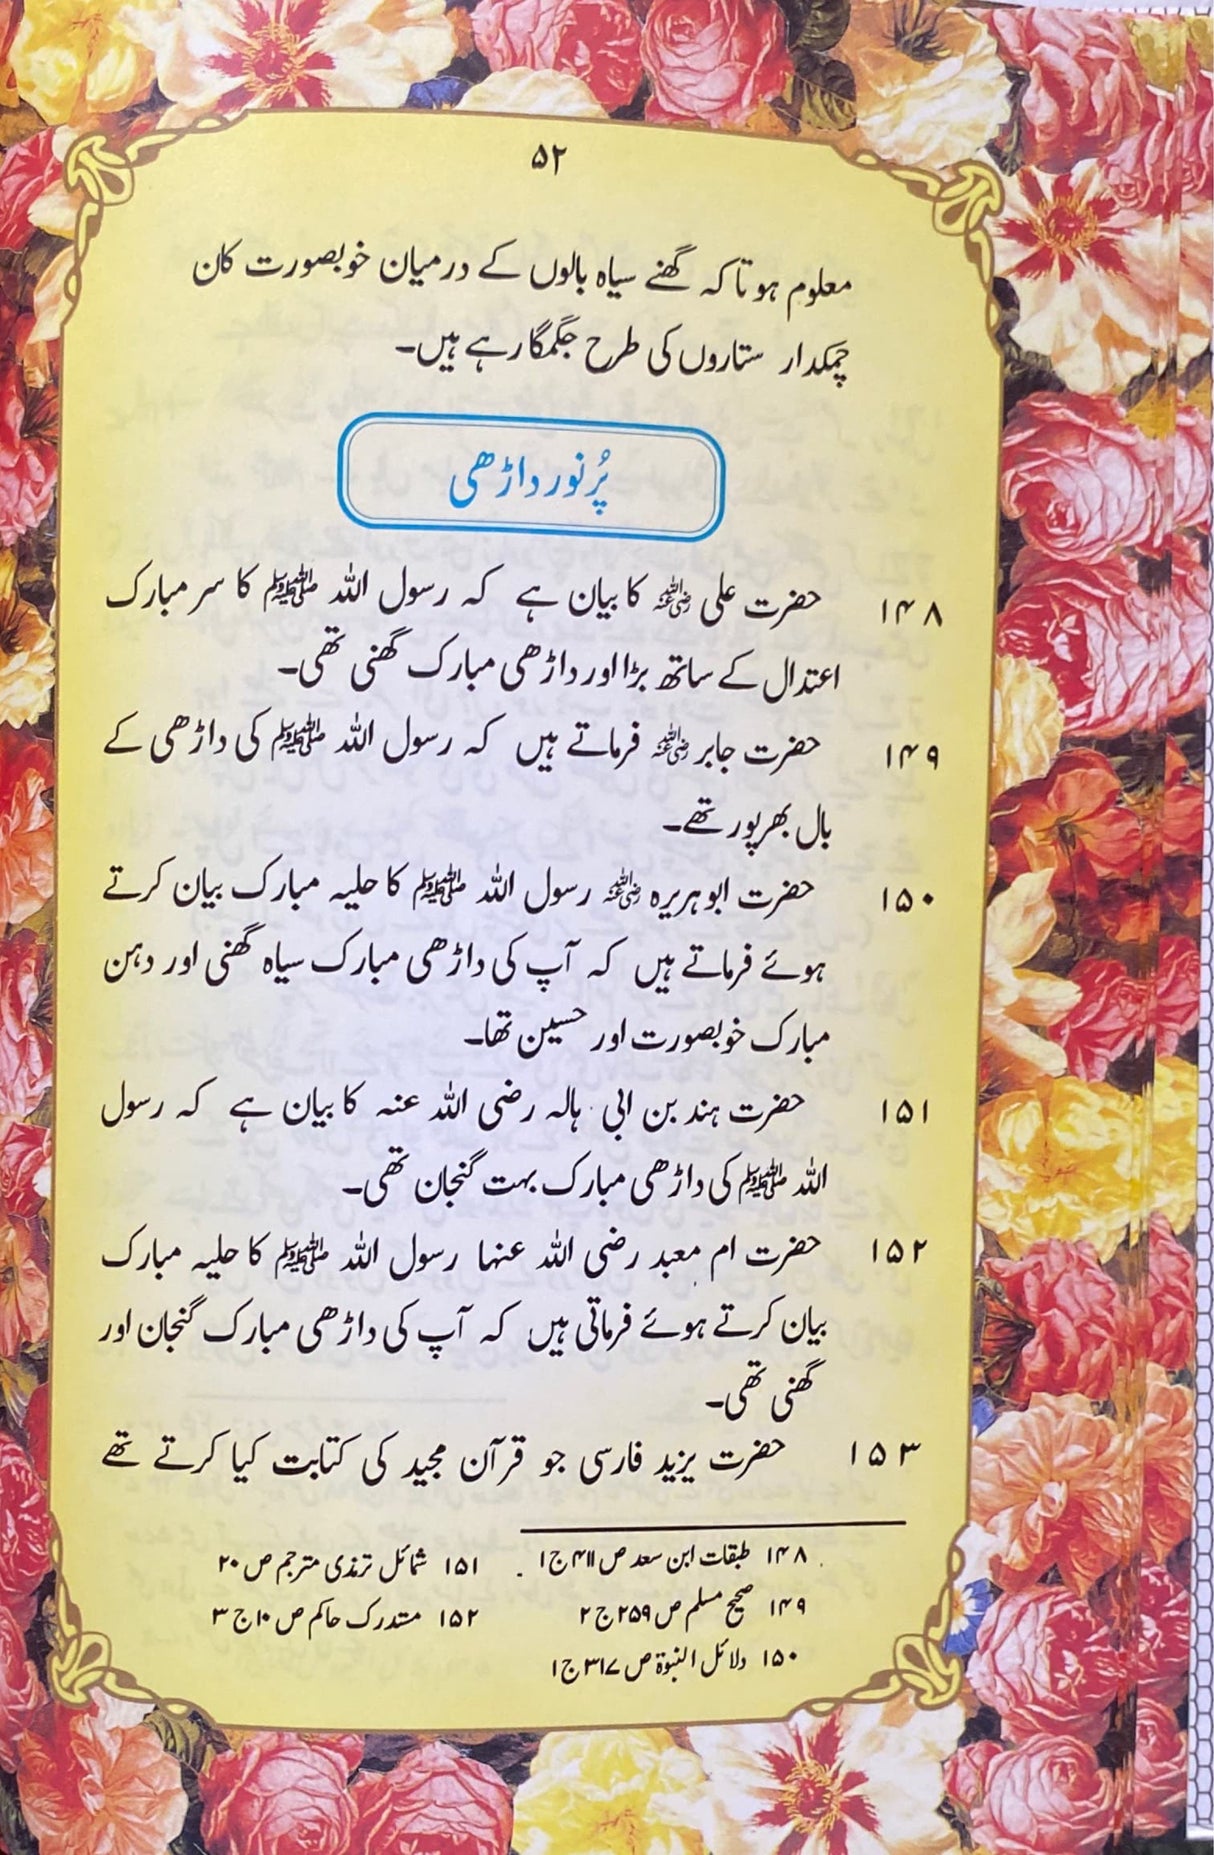 ۵۲
معلوم ہوتا کہ گھنے سیاہ بالوں کے درمیان خوبصورت کان
چمکدار ستاروں کی طرح جگمگا رہے ہیں۔
پُرنور داڑھی
۱۴۸ حضرت علی رضی اللہ عنہ کا بیان ہے کہ رسول اللہ ﷺ کا سر مبارک
اعتدال کے ساتھ بڑا اور داڑھی مبارک گھنی تھی۔
۱۴۹ حضرت جابر رضی اللہ عنہ فرماتے ہیں کہ رسول اللہ ﷺ کی داڑھی کے
بال بھرپور تھے۔
۱۵۰ حضرت ابو ہریرہ رضی اللہ عنہ رسول اللہ ﷺ کا حلیہ مبارک بیان کرتے
ہوئے فرماتے ہیں کہ آپ کی داڑھی مبارک سیاہ گھنی اور دہن
مبارک خوبصورت اور حسین تھا۔
۱۵۱ حضرت ہند بن ابی ہالہ رضی اللہ عنہ کا بیان ہے کہ رسول
اللہ ﷺ کی داڑھی مبارک بہت گنجان تھی۔
۱۵۲ حضرت ام معبد رضی اللہ عنہا رسول اللہ ﷺ کا حلیہ مبارک
بیان کرتے ہوئے فرماتی ہیں کہ آپ کی داڑھی مبارک گنجان اور
گھنی تھی۔
۱۵۳ حضرت یزید فارسی جو قرآن مجید کی کتابت کیا کرتے تھے
۱۴۸ طبقات ابن سعد ص ۴۱۱ ج ۱
۱۴۹ صحیح مسلم ص ۲۵۹ ج ۲
۱۵۰ دلائل النبوۃ ص ۳۱۷ ج ۱
۱۵۱ شمائل ترمذی مترجم ص ۲۰
۱۵۲ مستدرک حاکم ص ۱۰ ج ۳